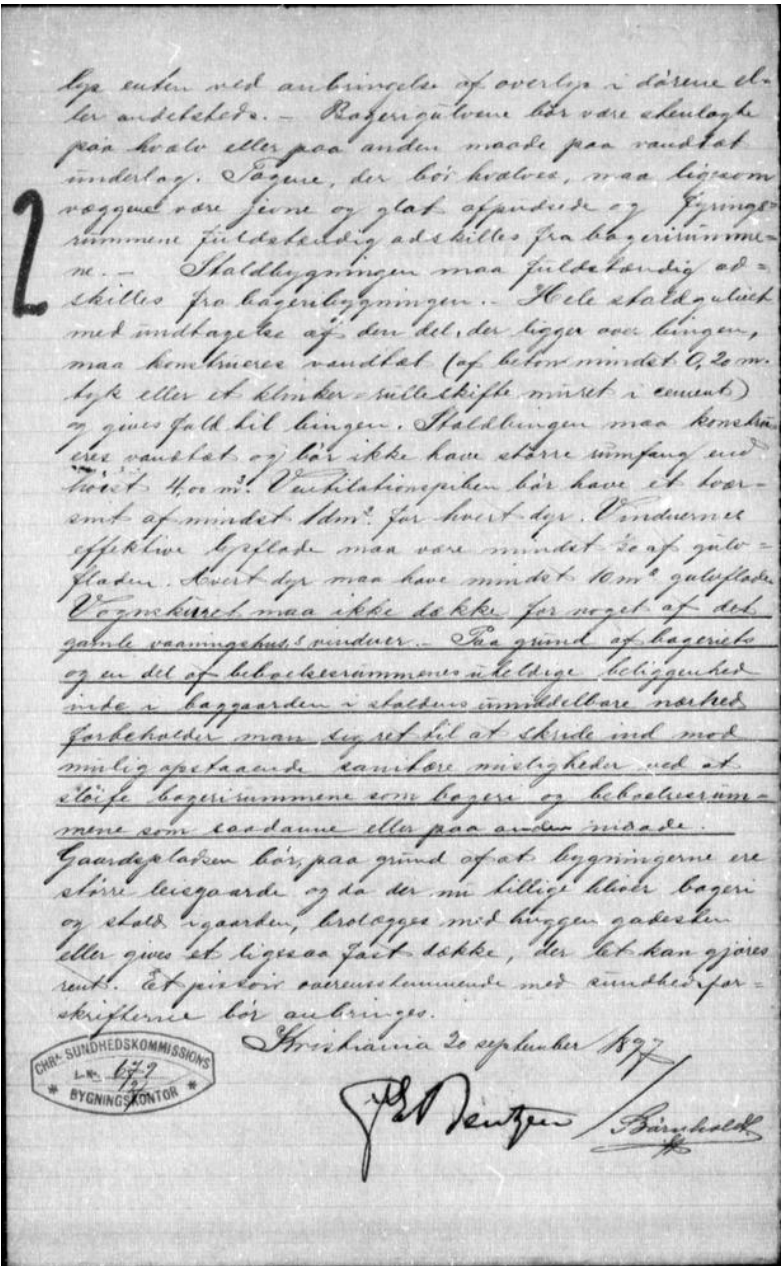 lys enten ved anbringelse af overlys i dörene el-
ler andetsteds. – Bagerigulvene bör være stenlagte
paa hvælv eller paa anden maade paa vandtæt
underlag. Tagene, der bör hvælves, maa ligesom
væggene være jevne og glat afpudsede og fyrings-
rummene fuldstændig adskilles fra bagerirumme-
ne. – Staldbygningen maa fuldstændig ad-
skilles fra bageribygningen. – Hele staldgulvet
med undtagelse af den del, der ligger over bingen,
maa konstrueres vandtæt (af beton mindst 0,20 m.
tyk eller et klinker-rulleskifte muret i cement)
og gives fald til bingen. Staldbingen maa konstru
eres vandtæt og bör ikke have större rumfang end
höist 4,00 m³. Ventilationspiben bör have et tvær-
snit af mindst 1 dm² for hvert dyr. Vinduernes
effektive lysflade maa være mindst 1/20 af gulv-
fladen. Hvert dyr maa have mindst 10 m² gulvflade
Vognskuret maa ikke dække for noget af det
gamle vaaningshus's vinduer. – Paa grund af bageriets
og en del af beboelsesrummenes uheldige beliggenhed
inde i baggaarden i staldens umiddelbare nærhed
forbeholder man sig ret til at skride ind mod
mulig opstaaende sanitære misligheder ved at
slöife bagerirummene som bageri og beboelsesrum-
mene som saadanne eller paa anden maade.
Gaardspladsen bör, paa grund af at bygningerne ere
större leiegaarde og da der nu tillige bliver bageri
og stald i gaarden, brolægges med huggen gadesten
eller gives et ligesaa fast dække, der let kan gjöres
rent. Et pissoir overensstemmende med sundhedsfor-
skrifterne bör anbringes.
Kristiania 20 september 1897
2
CHRA SUNDHEDSKOMMISSIONS
L. No. 679
97
BYGNINGSKONTOR
Bentzen / Börnholdt